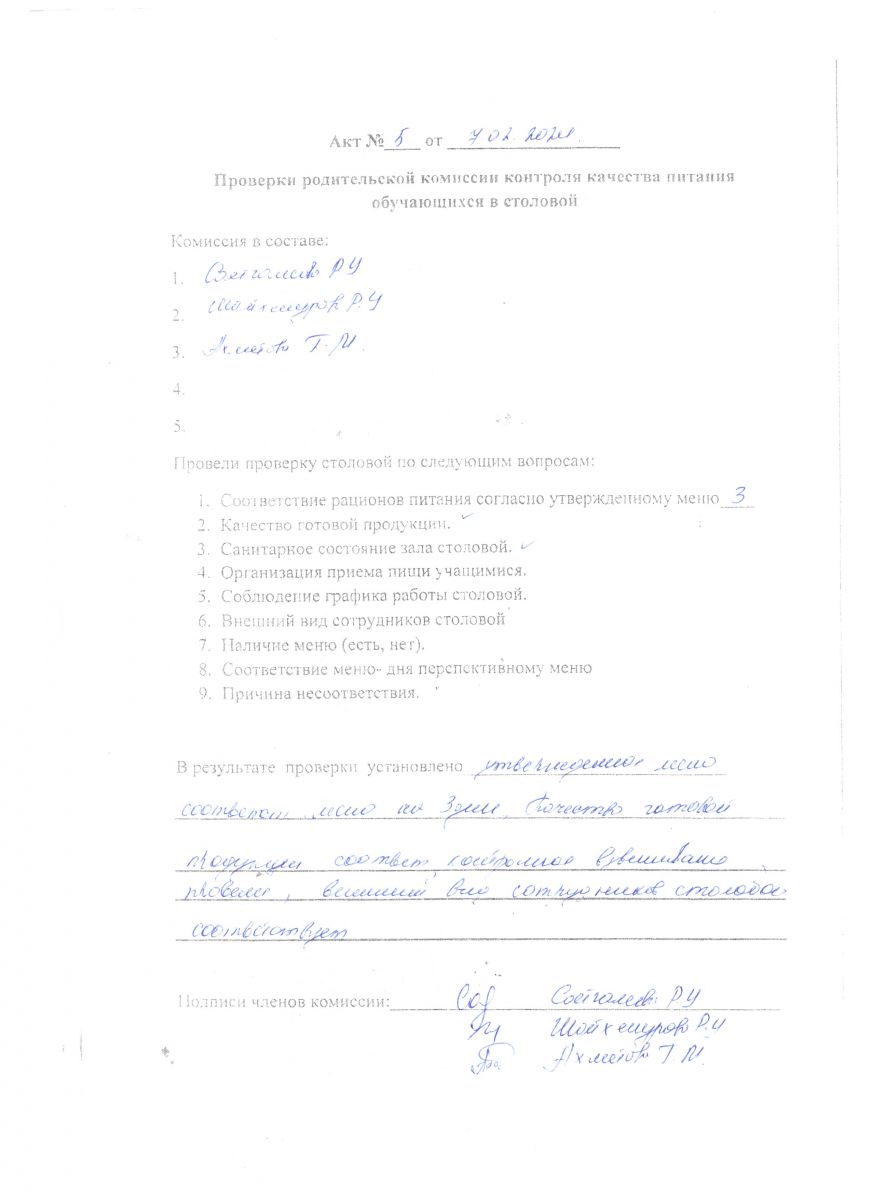 Акт № 5 от 7 02. 2024.
Проверки родительской комиссии контроля качества питания
обучающихся в столовой
Комиссия в составе:
1. Р У
2. Шайхнуров Р. У
3. Ахметова Г. М.
4.
5.
Провели проверку столовой по следующим вопросам:
1. Соответствие рационов питания согласно утвержденному меню 3
2. Качество готовой продукции. ✓
3. Санитарное состояние зала столовой. ✓
4. Организация приема пищи учащимися.
5. Соблюдение графика работы столовой.
6. Внешний вид сотрудников столовой
7. Наличие меню (есть, нет).
8. Соответствие меню- дня перспективному меню
9. Причина несоответствия.
В результате проверки установлено утвержденное меню
соответст меню на 3 день, Качество готовой
продукции соответ, контрольное взвешивание
провели, внешний вид сотрудников столовой
соответствует
Подписи членов комиссии: Р У
Шайхнуров Р. У
Ахметова Г. М.